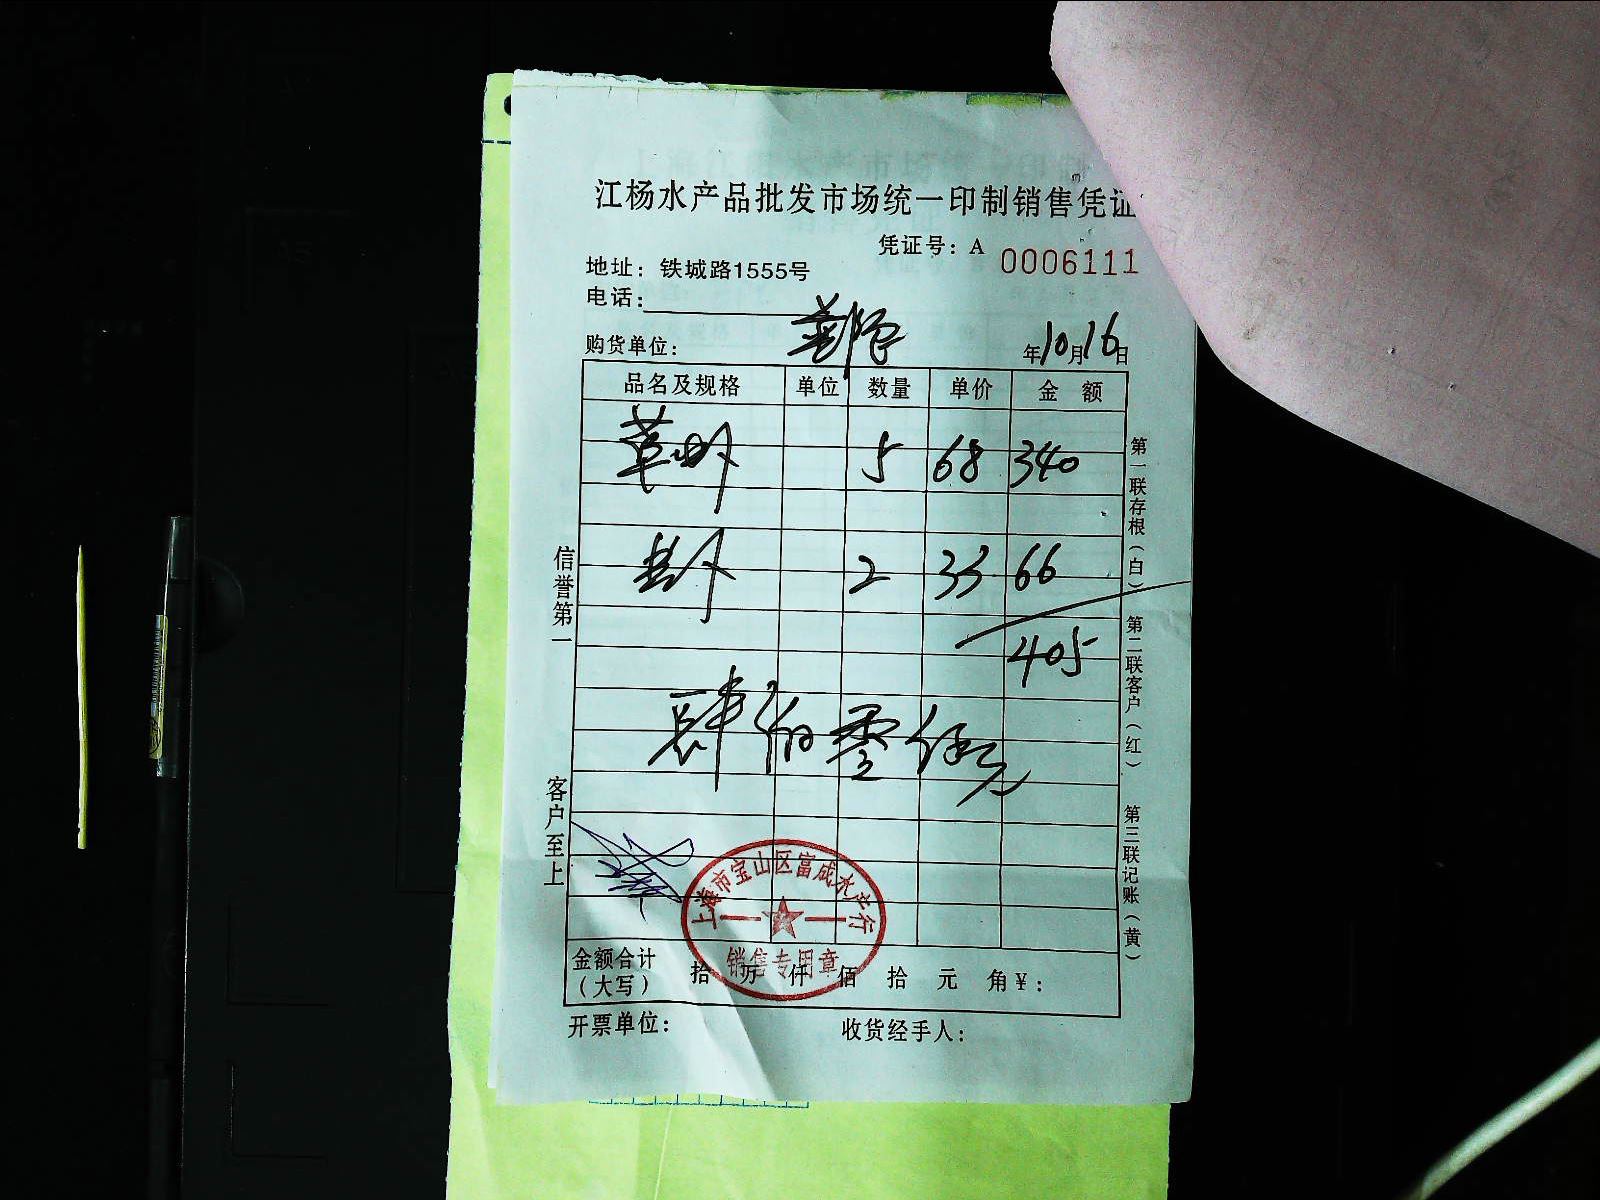 江杨水产品批发市场统一印制销售凭证
凭证号：A 0006111
地址：铁城路1555号
电话：
购货单位：
年10月16日
品名及规格 单位 数量 单价 金 额
草虾 5 68 340
2 33 66
405
肆佰零伍元
信誉第一
客户至上
第一联存根（白）
第二联客户（红）
第三联记账（黄）
上海市宝山区富成水产行
销售专用章
金额合计（大写） 拾 万 仟 佰 拾 元 角￥：
开票单位： 收货经手人：